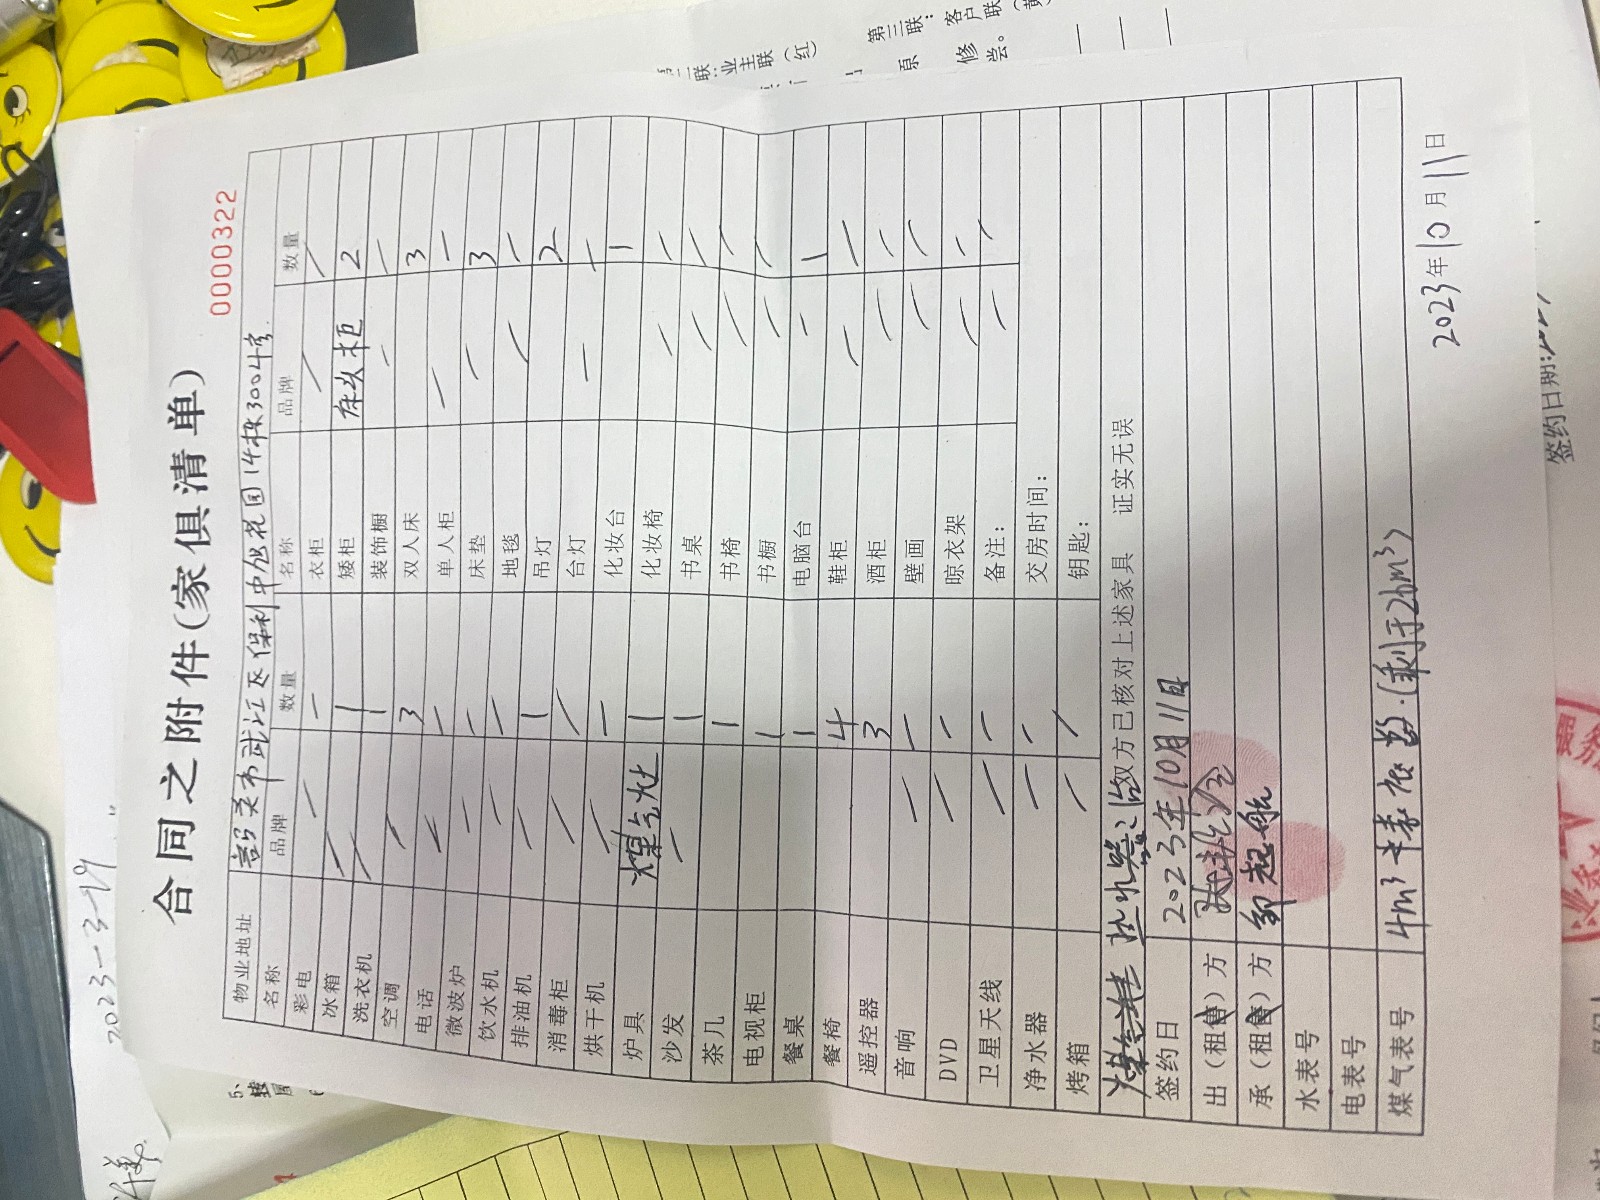 合同之附件(家俱清单)
0000322
物业地址 韶关市武江区保利中央花园14栋3004号
名称 品牌 数量 名称 品牌 数量
彩电 / / 衣柜 / /
冰箱 / 1 矮柜 床头柜 2
洗衣机 / 1 装饰橱 / /
空调 / 3 双人床 3
电话 / / 单人柜 / /
微波炉 / / 床垫 / 3
饮水机 / / 地毯 / /
排油机 / 1 吊灯 2
消毒柜 / / 台灯 / /
烘干机 / / 化妆台 1
炉具 煤气灶 1 化妆椅 / /
沙发 / 1 书桌 / /
茶几 1 书椅 / /
电视柜 1 书橱 / /
餐桌 1 电脑台 / 1
餐椅 4 鞋柜 / /
遥控器 3 酒柜 / /
音响 / / 壁画 / /
DVD / / 晾衣架 / /
卫星天线 / / 备注: / /
净水器 / / 交房时间:
烤箱 / / 钥匙:
热水器 双方已核对上述家具 证实无误
签约日 2023年10月11日
出(租售)方
承(租售)方 邹起航
水表号
电表号
煤气表号 4m³ 剩于26m³)
2023年10月11日
2023-3-19
二联:业主联(红)
第三联:客户联(黄)
原
修
尝。
签约日期:
服务
5、